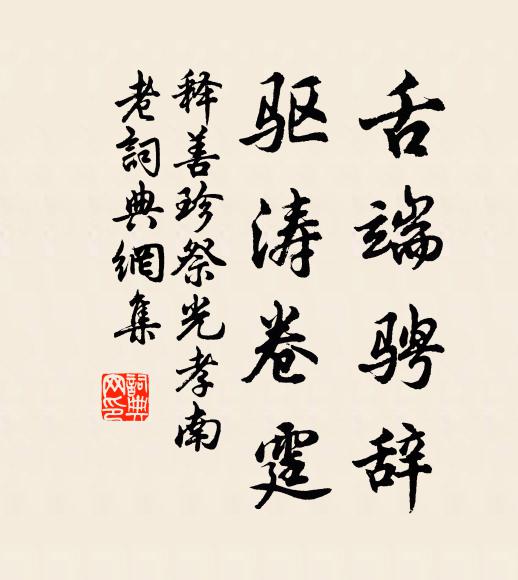 舌端骋辞
驱涛卷霆
释善珍祭光孝南
老詞典網集
詞典
网印